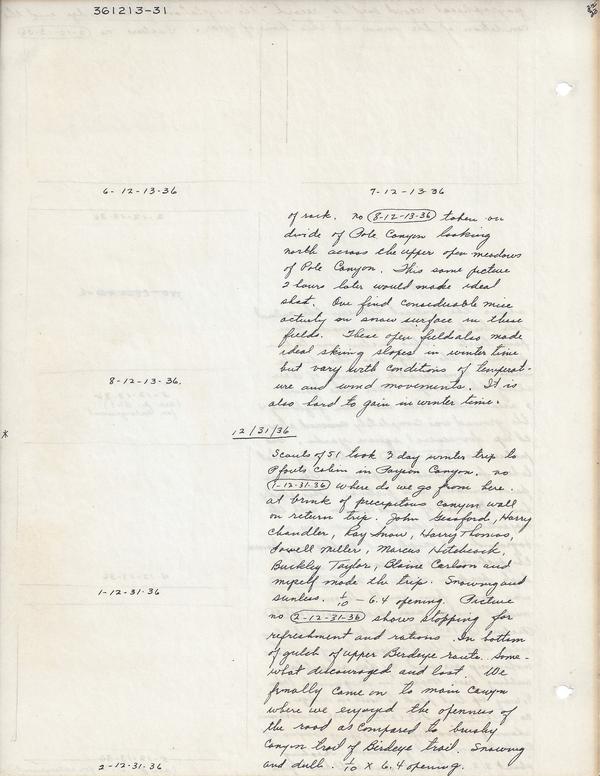 361213-31
6-12-13-36
7-12-13-36
of rock. no 8-12-13-36 taken on
divide of Pole Canyon looking
north across the upper open meadows
of Pole Canyon. This same picture
2 hours later would make ideal
shot. One find considerable mice
activity on snow surface in these
fields. These open fields also made
ideal skiing slopes in winter time
but vary with conditions of temperat-
ure and wind movements. It is
also hard to gain in winter time.
8-12-13-36.
12/31/36
*
Scouts of 51 took 3 day winter trip to
Pfouts cabin in Payson Canyon. no
1-12-31-36 where do we go from here.
at brink of precipitous canyon wall
on return trip. John , Harry
Chandler, Ray Snow, Harry Thomas,
Lowell Miller, Marcus Hitchcock,
Buckley Taylor, Blaine Carlson and
myself made the trip. Snowing and
sunless. 1/10 - 6.4 opening. Picture
1-12-31-36
no 2-12-31-36 shows stopping for
refreshment and rations. In bottom
of gulch of upper Birdeye route. Some-
what discouraged and lost. We
finally came on to main canyon
where we enjoyed the openness of
the road as compared to brushy
canyon trail of Birdeye trail. Snowing
and dull. 1/10 x 6.4 opening.
2-12-31-36